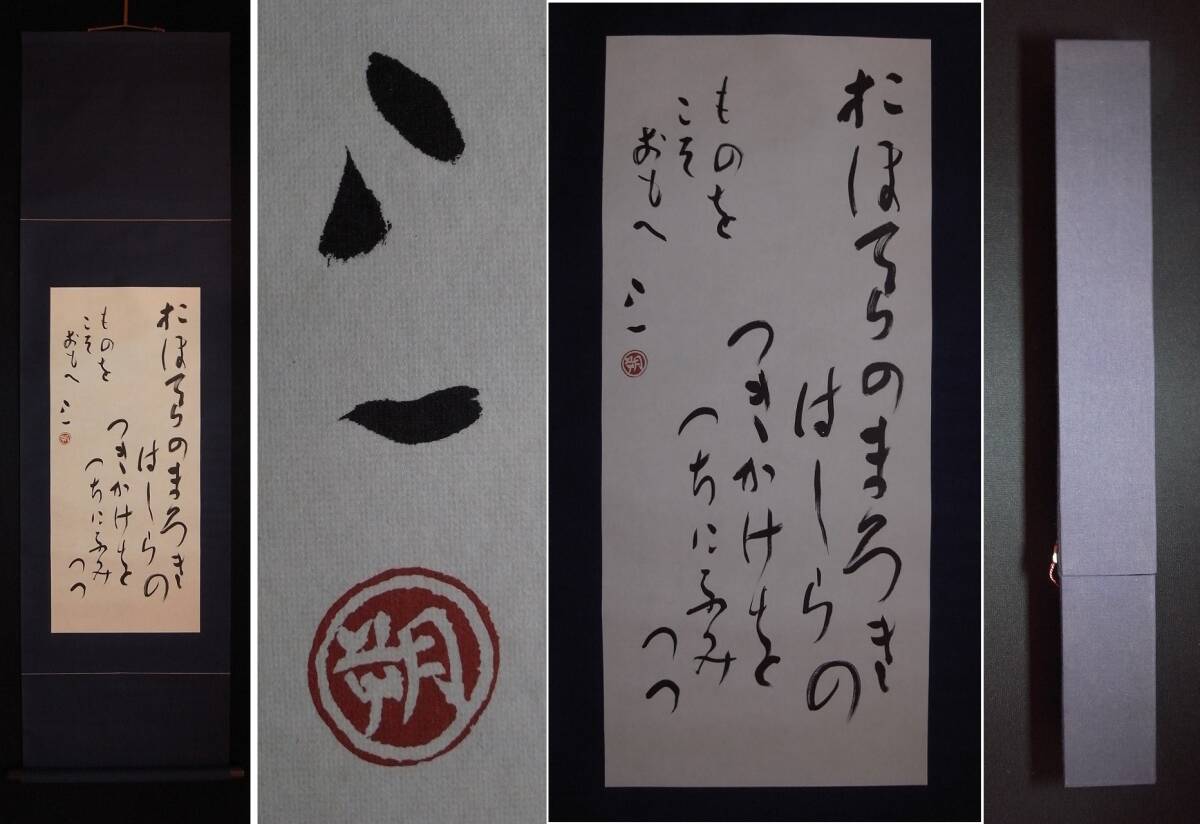 おほてらのまろき
はしらの
つきかけを
つちにふみ
つつ
ものを
こそ
おもへ
八一
朔
八一
朔
おほてらのまろき
はしらの
つきかけを
つちにふみ
つつ
ものを
こそ
おもへ
八一
朔